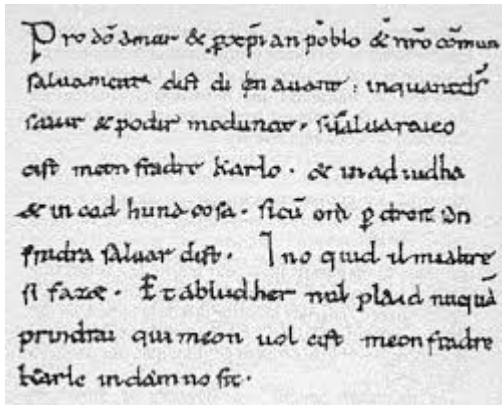 Pro dō amur & ꝓ xp̄ian poblo & nrō cōmun
saluament dist di en auant. inquantd̄s
sauir & podir medunat. sīsaluaraieo
cist meon fradre karlo. & in ad iudha
& in cad huna cosa. sicū om ꝑ dreit son
fradra saluar dist. Ino quid il mialtre
si faz&. Et abludher nul plaid nūquā
prindrai qui meon uol cist meon fradre
karle in damno sit.